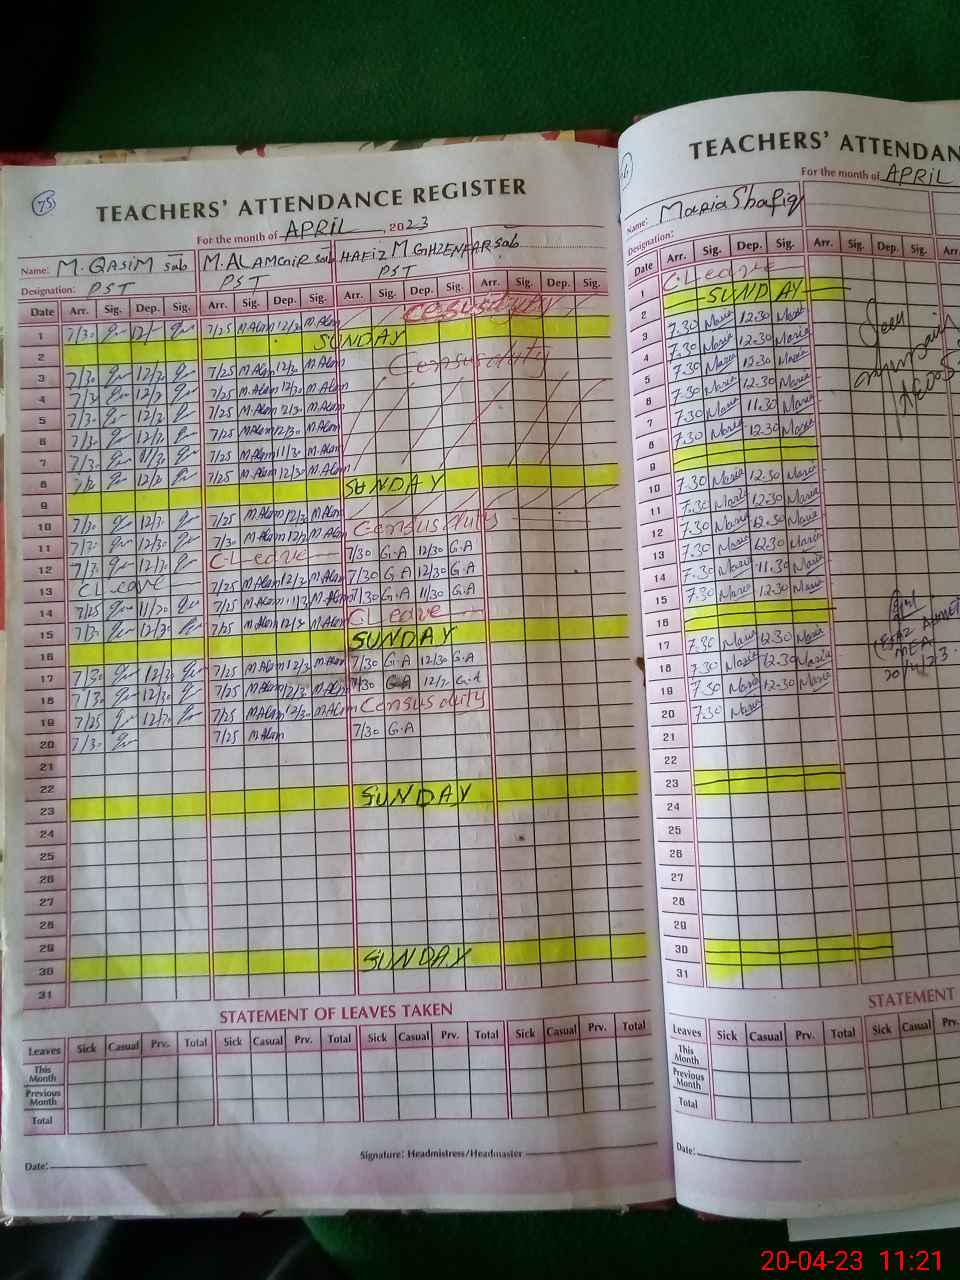 75
TEACHERS' ATTENDANCE REGISTER
For the month of APRIL, 2023
Name: M. QASIM sab M. ALAMGIR sab HAFIZ M GHZENFAR sab
Designation: PST PST PST
Date Arr. Sig. Dep. Sig. Arr. Sig. Dep. Sig. Arr. Sig. Dep. Sig. Arr. Sig. Dep. Sig.
1 7/30 7/25 M.Alam M.Alam
2 SUNDAY
3 7/30 12/30 7/25 M.Alam 12/30 M.Alam Census duty
4 7/30 7/25 M.Alam 12/30 M.Alam
5 7/30 7/25 M.Alam M.Alam
6 7/30 7/25 M.Alam 12/30 M.Alam
7 7/30 7/25 M.Alam 11/30 M.Alam
8 7/25 M.Alam 12/30 M.Alam
9 SUNDAY
10 7/30 12/30 7/25 M.Alam 12/30 M.Alam Census duty
11 7/30 12/30 7/30 M.Alam M.Alam 7/30 G.A 12/30 G.A
12 7/30 12/30 C Leave 7/30 G.A 12/30 G.A
13 C Leave 7/25 M.Alam M.Alam 7/30 G.A 11/30 G.A
14 7/25 11/30 7/25 M.Alam M.Alam C Leave
15 7/30 12/30 7/25 M.Alam M.Alam
16 SUNDAY
17 7/30 12/30 7/25 M.Alam 12/30 M.Alam 7/30 G.A 12/30 G.A
18 7/30 12/30 7/25 M.Alam M.Alam 7/30 G.A G.A
19 7/25 12/30 7/25 M.Alam 12/30 M.Alam Census duty
20 7/30 7/25 M.Alam 7/30 G.A
21
22
23 SUNDAY
24
25
26
27
28
29
30 SUNDAY
31
STATEMENT OF LEAVES TAKEN
Leaves Sick Casual Prv. Total Sick Casual Prv. Total Sick Casual Prv. Total Sick Casual Prv. Total
This Month
Previous Month
Total
Date:
Signature: Headmistress/Headmaster
TEACHERS' ATTENDAN
For the month of APRIL
Name: Maria Shafiq
Designation:
Date Arr. Sig. Dep. Sig. Arr. Sig. Dep. Sig. Arr.
1 C Leave
2 SUNDAY
3 7.30 Maria 12.30 Maria
4 7.30 Maria 12.30 Maria
5 7.30 Maria 12.30 Maria
6 7.30 Maria 12.30 Maria
7 7.30 Maria 11.30 Maria
8 7.30 Maria 12.30 Maria
9
10 7.30 Maria 12.30 Maria
11 7.30 Maria 12.30 Maria
12 7.30 Maria 12.30 Maria
13 7.30 Maria 12.30 Maria
14 7.30 Maria 11.30 Maria
15 7.30 Maria 12.30 Maria
16
17 7.30 Maria 12.30 Maria
18 7.30 Maria 12.30 Maria
19 7.30 Maria 12.30 Maria
20 7.30 Maria
21
22
23
24
25
26
27
28
29
30
31
Seen
MEA
20/4/23
STATEMENT
Leaves Sick Casual Prv. Total Sick Casual Prv.
This Month
Previous Month
Total
Date:
20-04-23 11:21